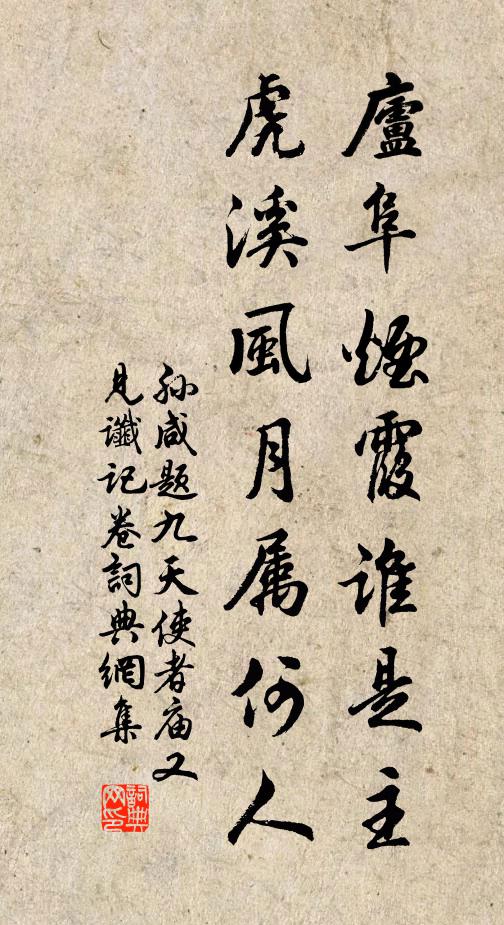 廬阜煙霞誰是主
虎溪風月属何人
孙咸题九天使者庙又
見讖記卷詞典網集
詞典网印